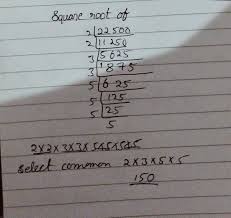 Square root of
2 | 22500
2 | 11250
3 | 5625
3 | 1875
5 | 625
5 | 125
5 | 25
5
2x2x3x3x5x5x5x5
select common 2x3x5x5
150